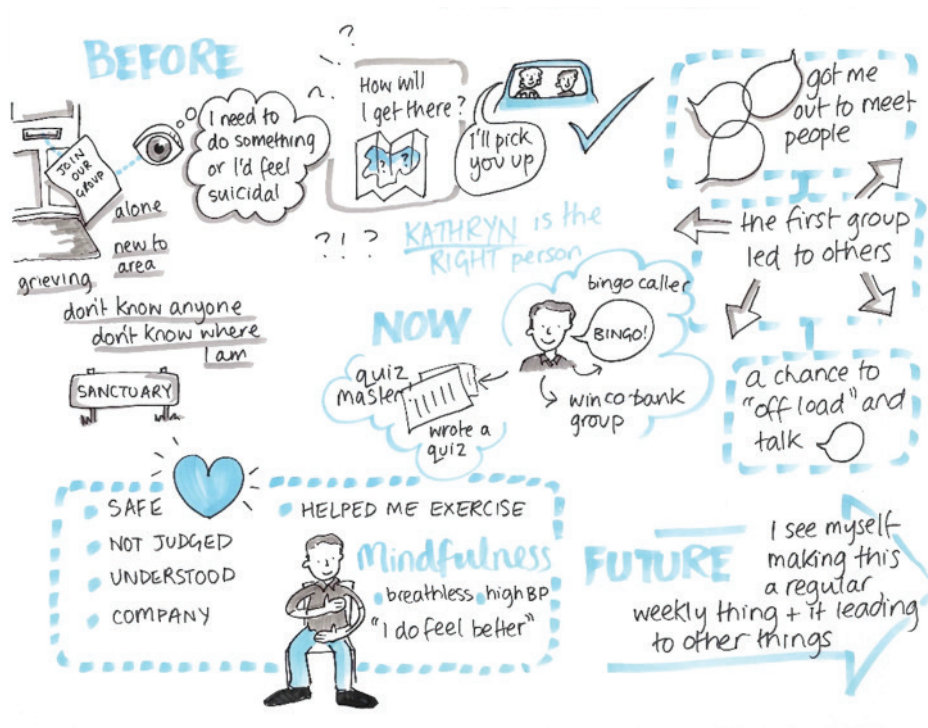 BEFORE
JOIN
OUR
GROUP
alone
new to
area
grieving
don't know anyone
don't know where
I am
SANCTUARY
I need to
do something
or I'd feel
suicidal
?
?
How will
I get there?
? ?
I'll pick
you up
? ! ?
KATHRYN is the
RIGHT person
got me
out to meet
people
the first group
led to others
a chance to
"off load" and
talk
NOW
bingo caller
BINGO!
winco bank
group
quiz
master
wrote a
quiz
SAFE
NOT JUDGED
UNDERSTOOD
COMPANY
HELPED ME EXERCISE
Mindfulness
breathless high BP
"I do feel better"
FUTURE
I see myself
making this
a regular
weekly thing + it leading
to other things